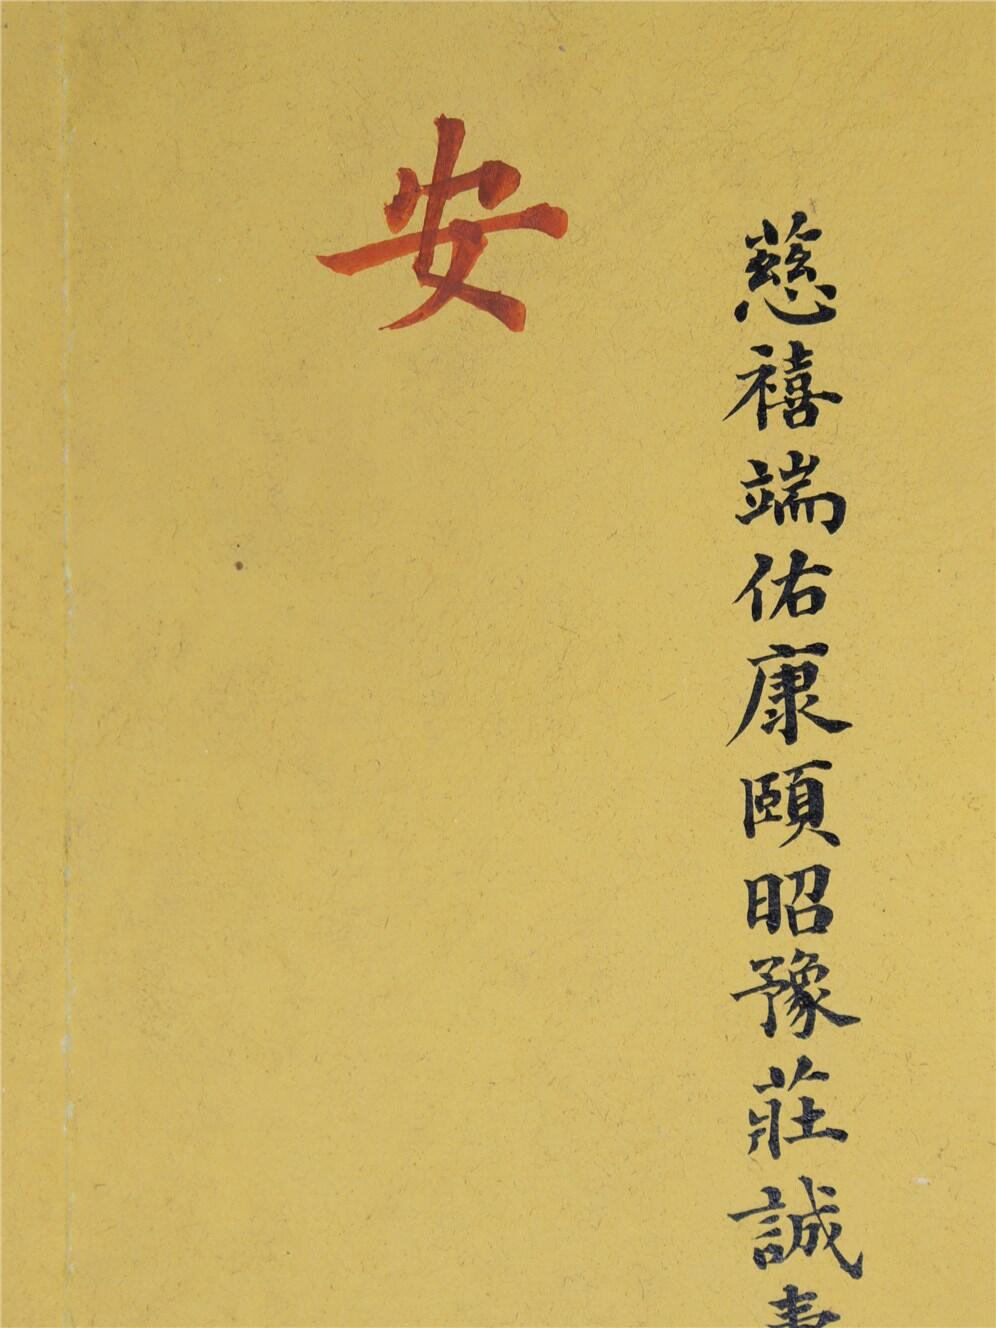 慈禧端佑康頤昭豫莊誠
安